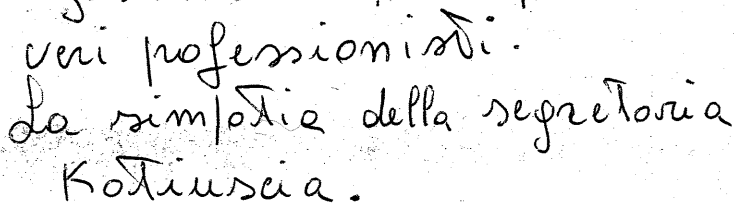 veri pofessionisti.
La simpatia della segretaria
Katiuscia.